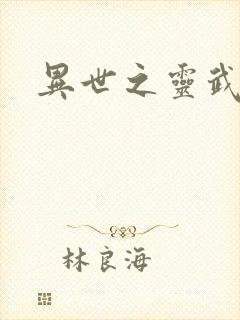 異世之靈武
林良海